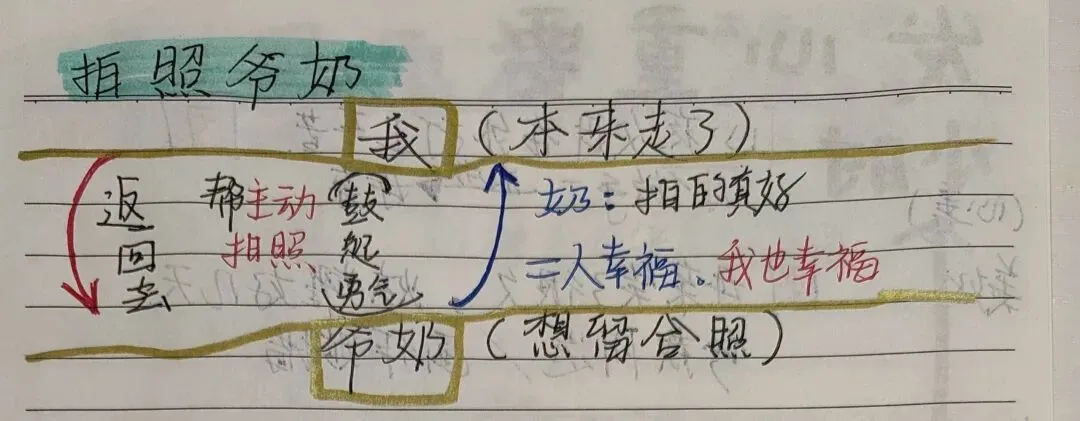 拍照爷奶
我(本来走了)
返回去
帮主动拍照
(鼓起勇气)
奶：拍的真好
二人幸福。我也幸福
爷奶(想留合照)